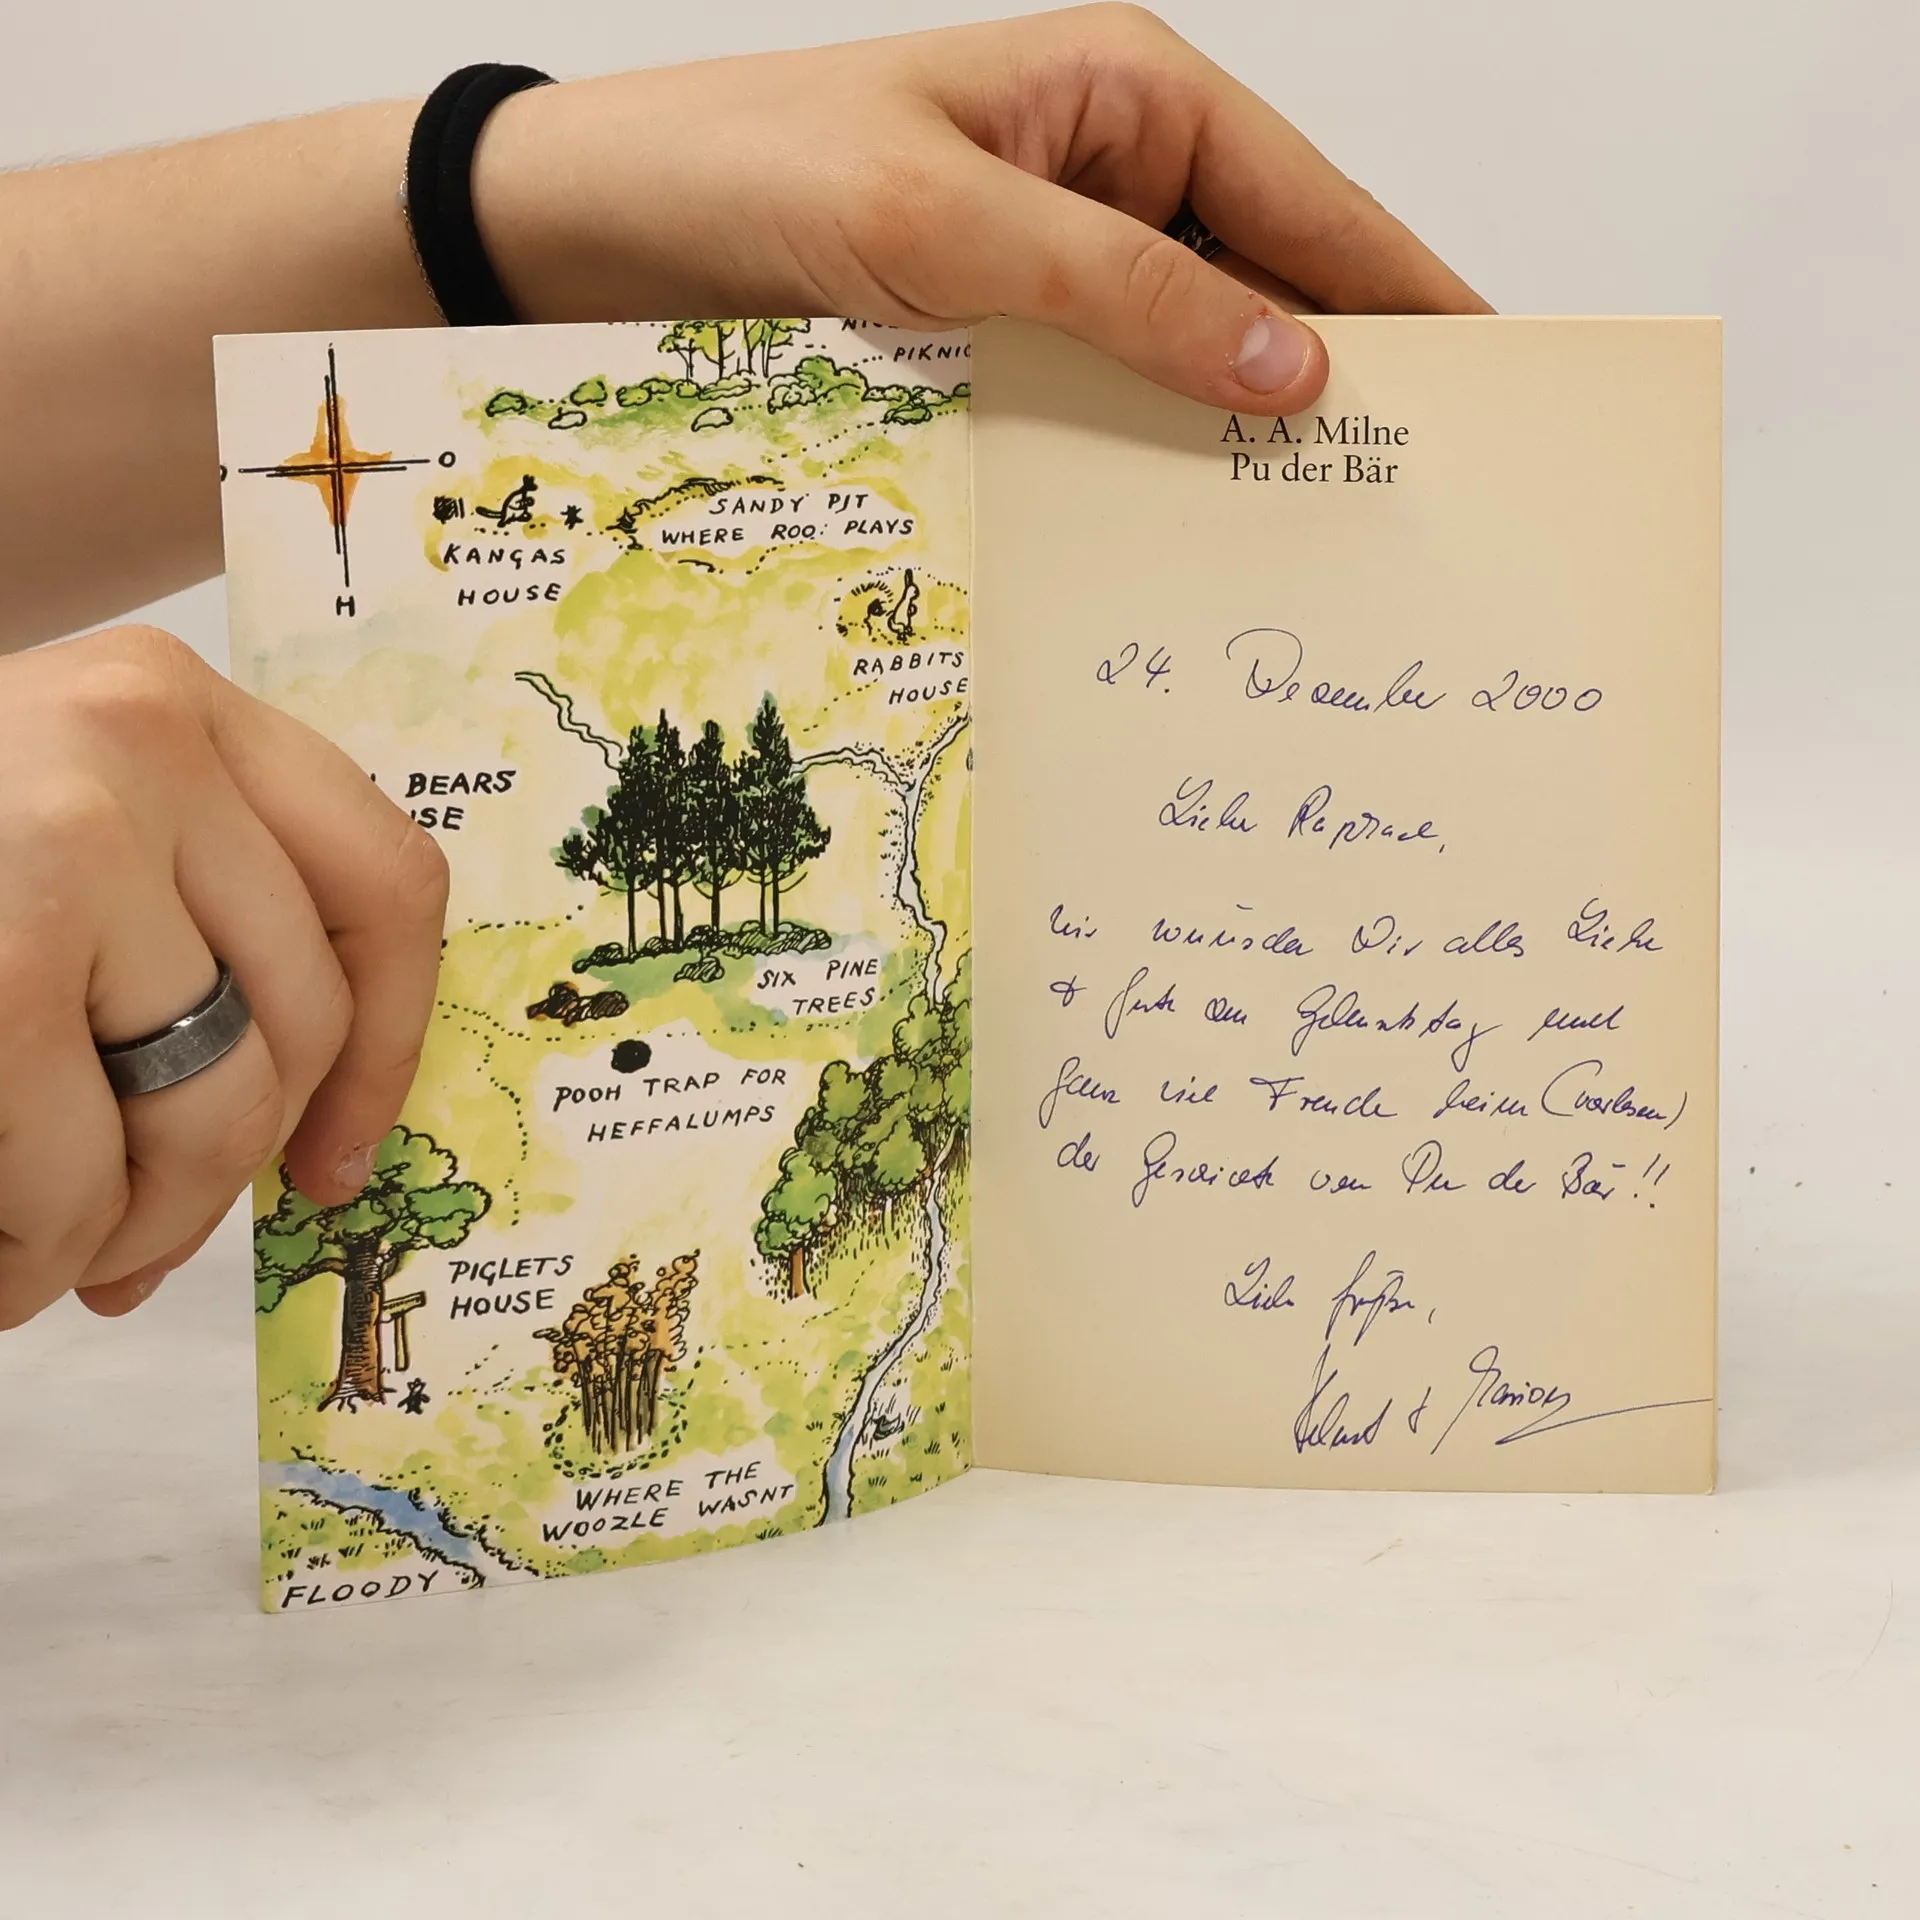 PIKNIC
O
KANGAS
HOUSE
H
SANDY PIT
WHERE ROO: PLAYS
RABBITS
HOUSE
BEARS
SIX PINE
TREES
POOH TRAP FOR
HEFFALUMPS
PIGLETS
HOUSE
WHERE THE
WOOZLE WASNT
FLOODY
A. A. Milne
Pu der Bär
24. Dezember 2000
Lieber Raphael,
wir wünschen Dir alles Liebe
& Gute zum Geburtstag und
ganz viel Freude beim (vorlesen)
der Geschichte von Pu der Bär!!
Liebe Grüße,
Helmut & Marion